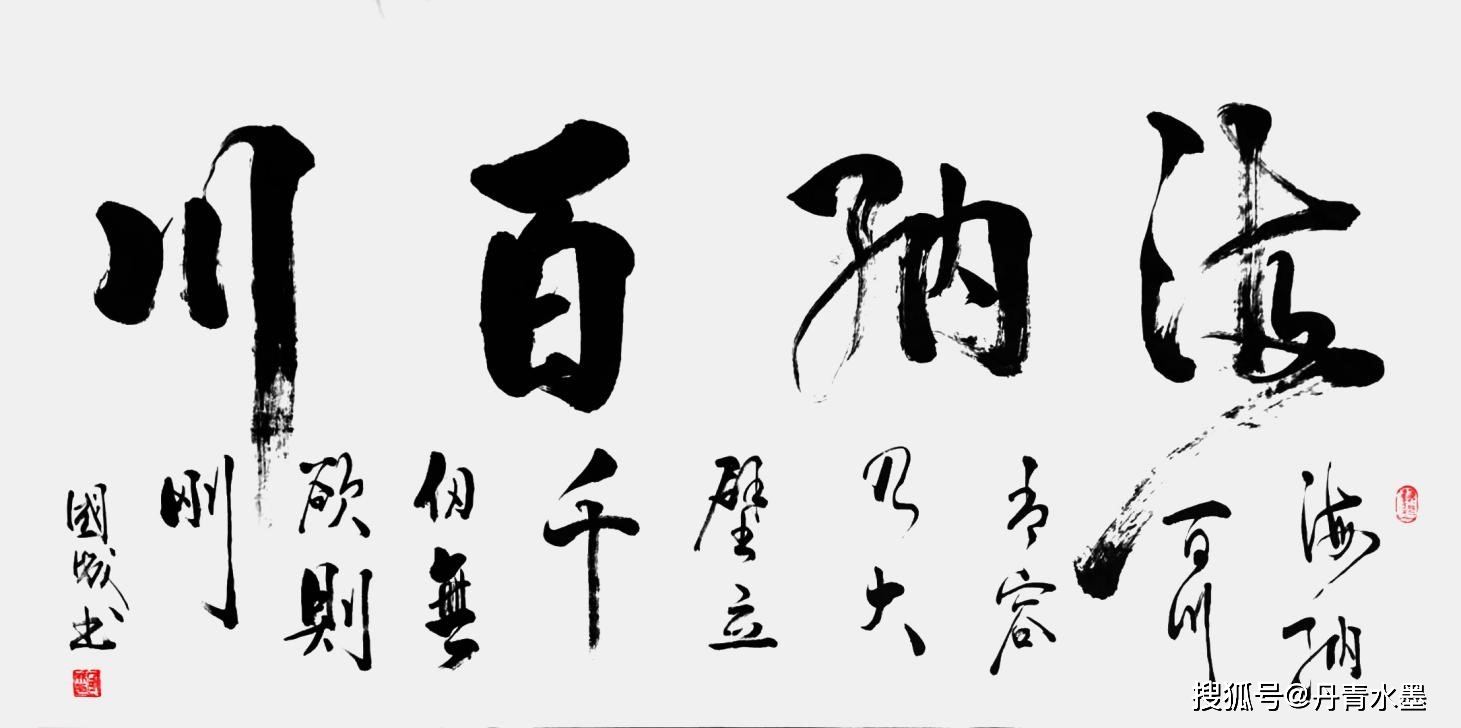 海納百川
海納
百川
有容
乃大
壁立
千
仞無
欲則
剛
國城书
搜狐号@丹青水墨